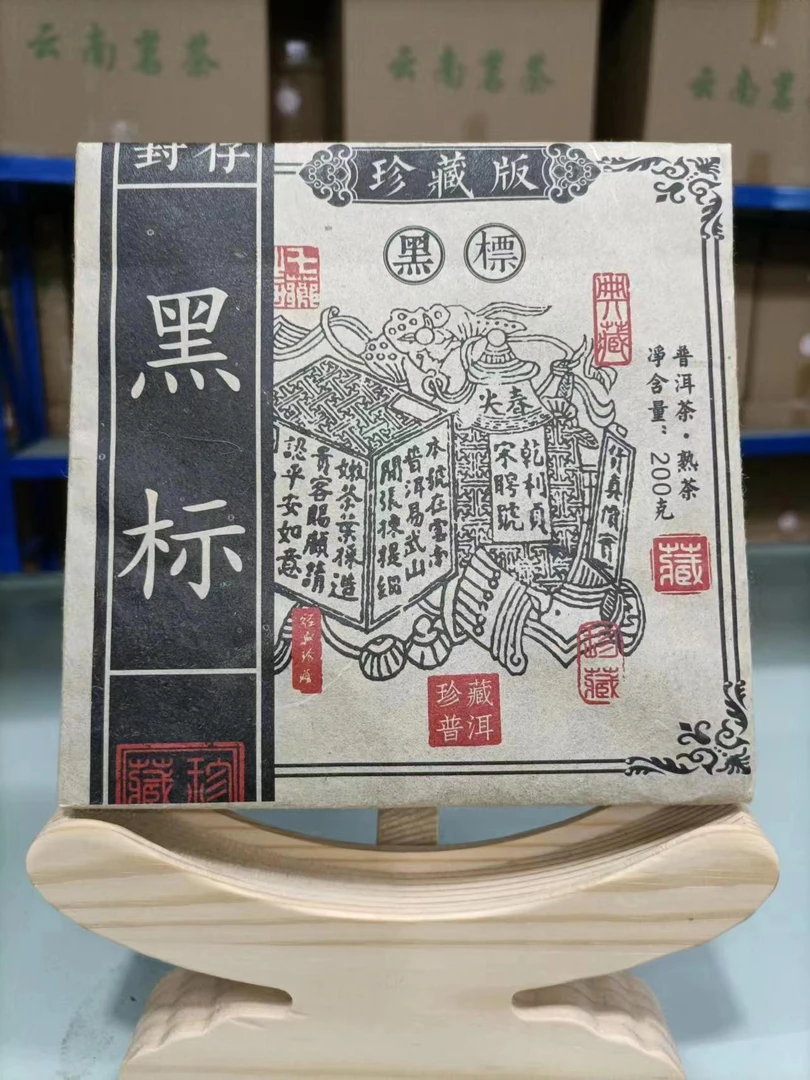 云南茗茶
云南茗茶
云南茗
封存
珍藏版
黑标
黑標
典藏
普洱茶·熟茶
凈含量：200克
春尖
乾利貞
宋聘號
本號在雲南
普洱易武山
開張揀提細
嫩茶葉揉造
貴客賜顧請
認平安如意
貨真價實
藏
珍藏
珍藏
普洱
珍藏